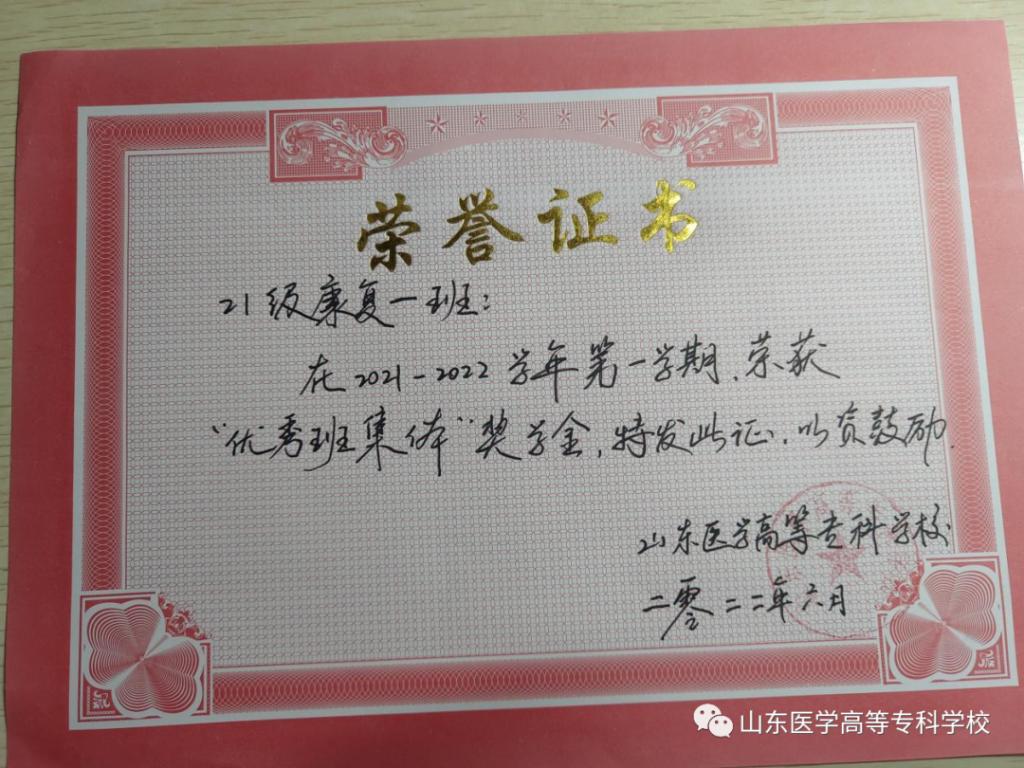 荣誉证书
21级康复一班：
在2021-2022学年第一学期，荣获
“优秀班集体”奖学金，特发此证，以资鼓励.
山东医学高等专科学校
二零二二年六月
山东医学高等专科学校